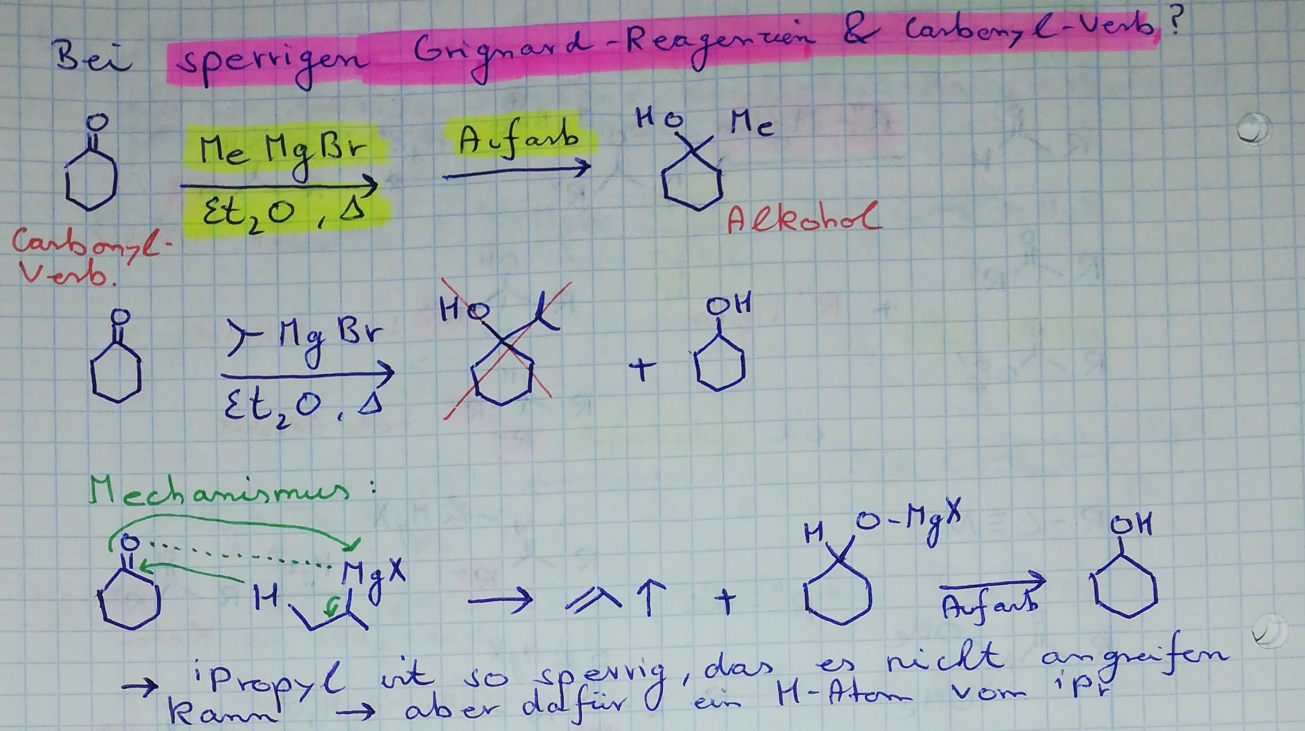 Bei sperrigen Grignard-Reagenzien & Carbonyl-Verb?
O
MeMgBr
Et₂O, Δ
Aufarb
HO Me
Carbonyl-
Verb.
Alkohol
O
MgBr
Et₂O, Δ
HO
+
OH
Mechanismus:
O
H
MgX
→
↑ +
H O-MgX
Aufarb
OH
→ iPropyl ist so sperrig, das es nicht angreifen
kann → aber dafür ein H-Atom vom iPr